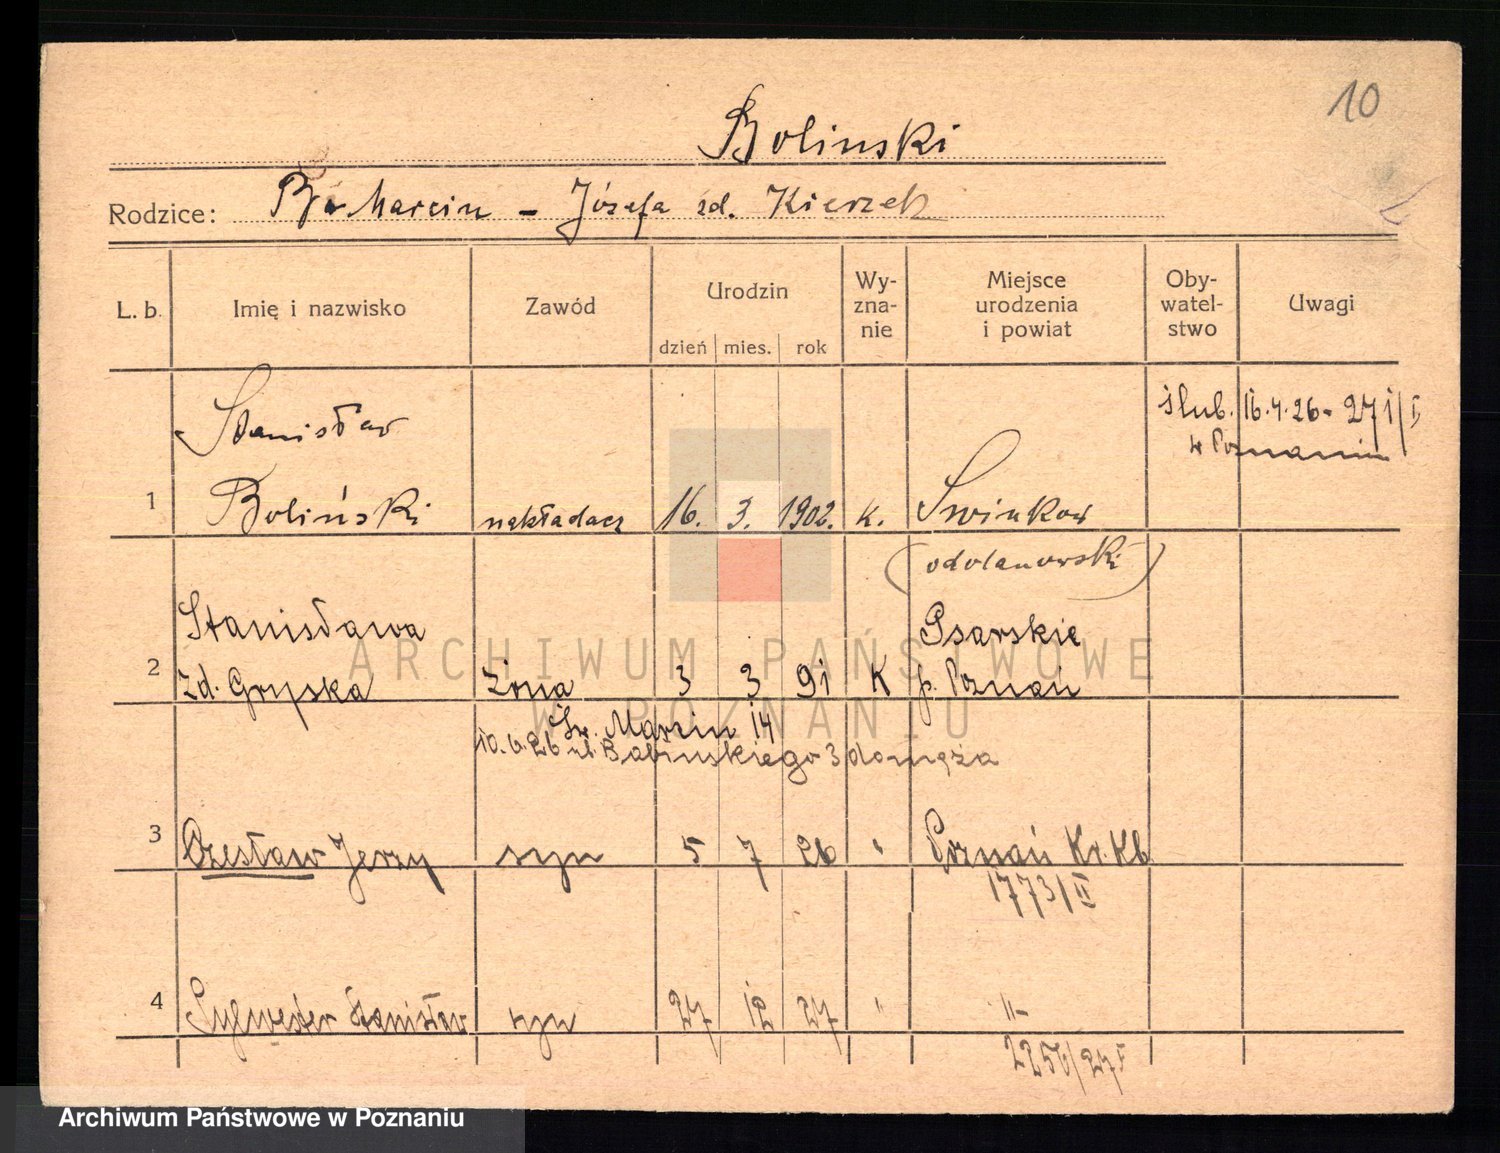 10
Bolinski
Rodzice: B. Marcin - Józefa zd. Kierzek
L. b. Imię i nazwisko Zawód Urodzin dzień mies. rok Wy-zna-nie Miejsce urodzenia i powiat Oby-watel-stwo Uwagi
Stanisław ślub. 16.4.26 - 271/I
w Poznaniu
1 Boliński nakładacz 16. 3. 1902. K. Swinkow
(odolanowski)
Stanisława Psarskie
2 zd. Gryska żona 3 3 91 K p. Poznań
Św. Marcin 14
10.6.26 ul. Babinskiego 3 do męża
3 Czesław Jerzy syn 5 7 26 " Poznań Kr. Kb
1773/II
4 Sylwester Stanisław syn 27 12 27 " -"-
2250/27 I
ARCHIWUM PAŃSTWOWE
W POZNANIU
Archiwum Państwowe w Poznaniu